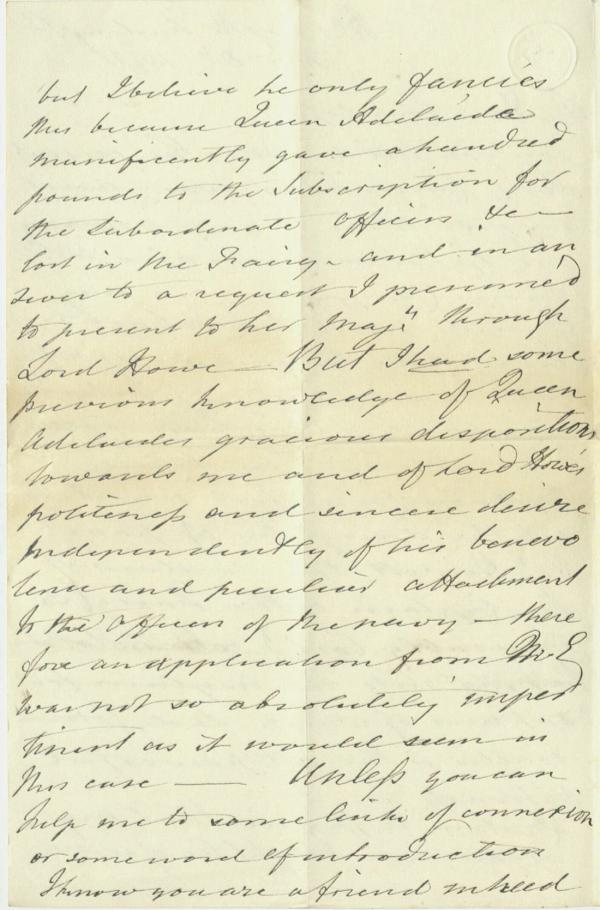 but I believe he only fancies
this because Queen Adelaide
munificently gave a hundred
pounds to the Subscription for
the Subordinate Officers &c —
lost in the Fairy - and in an
swer to a request I presumed
to present to her Majty through
Lord Howe — But I had some
previous knowledge of Queen
Adelaides gracious dispositions
towards me and of Lord Howe's
politeness and sincere desire
independently of his benevo
lence and peculiar attachment
to the Officers of the navy - there
fore an application from Mr E
was not so absolutely imper
tinent as it would seem in
this case — Unless you can
help me to some links of connexion
or some word of introduction
I know you are a friend in need